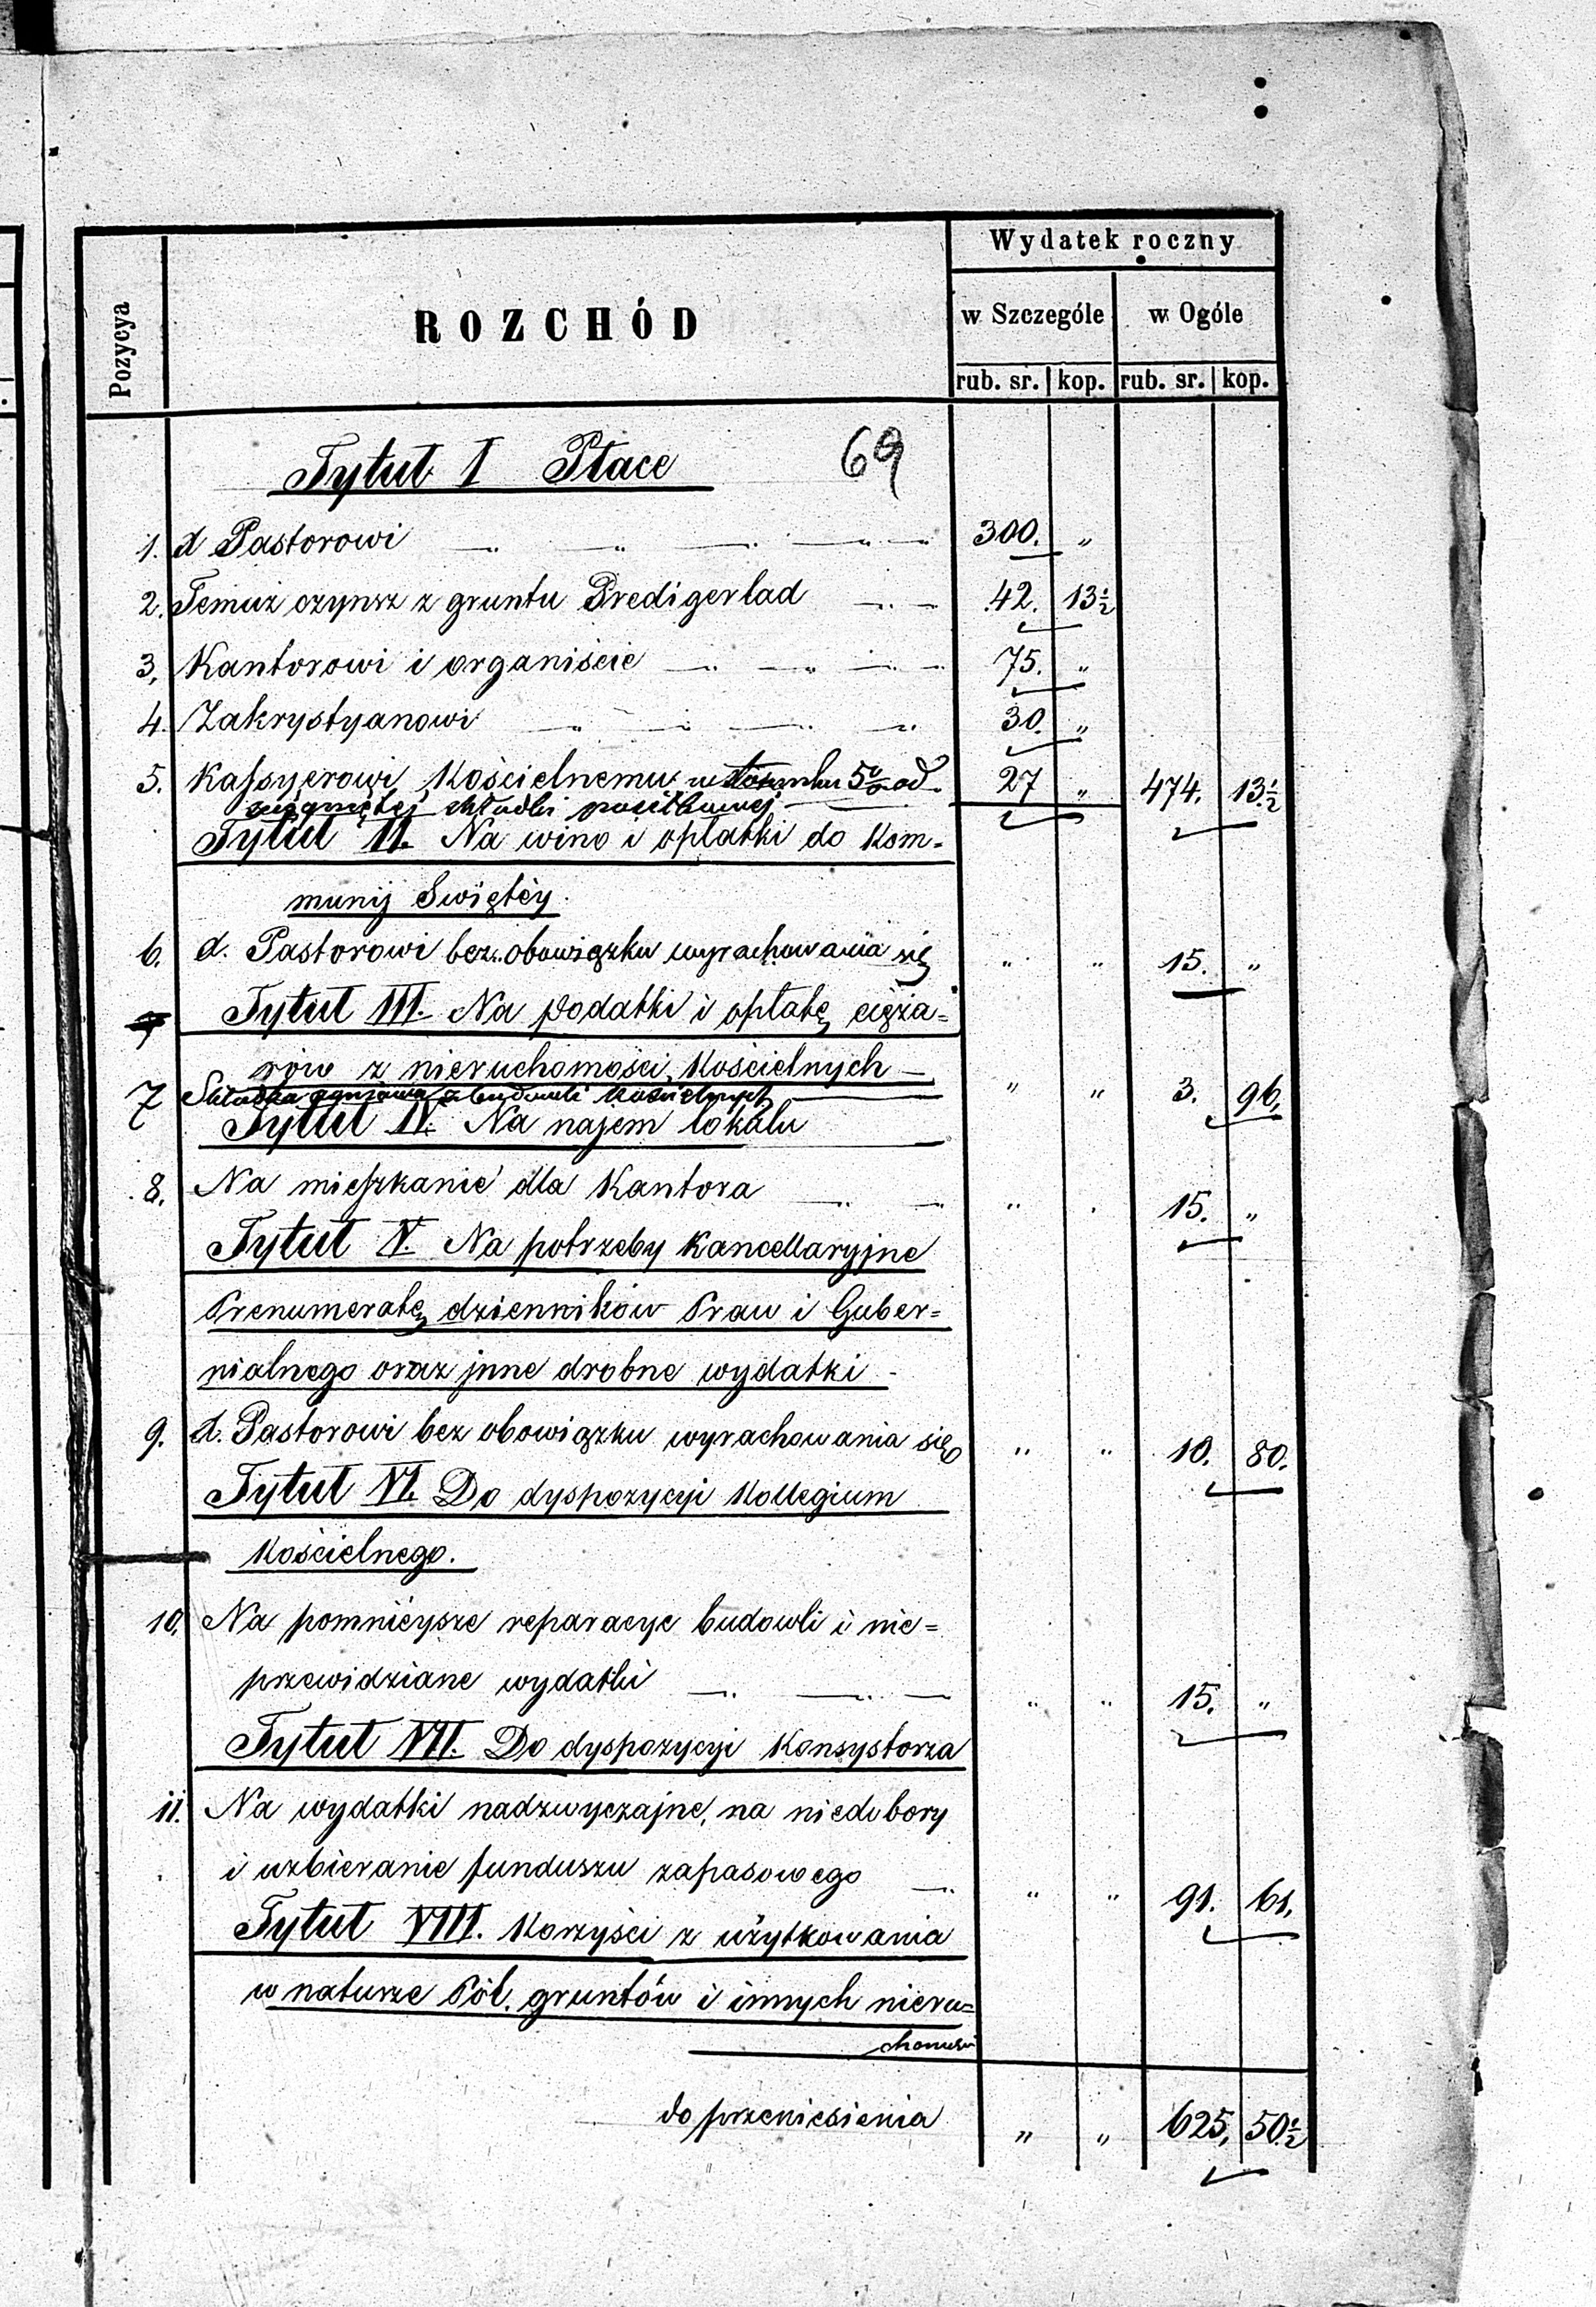 Wydatek roczny
Pozycya
ROZCHÓD
w Szczególe w Ogóle
rub. sr. kop. rub. sr. kop.
Tytuł I Płace 69
1. d Pastorowi 300. „
2. Temuż czynsz z gruntu Predigerlad 42. 13½
3, Kantorowi i organiście 75. „
4. Zakrystyanowi 30. „
5. Kassyerowi Kościelnemu w stosunku 5% od 27 „ 474. 13½
składki posiłkowej
Tytuł II. Na wino i opłatki do Kom-
munij Swiętéy.
6. d. Pastorowi bez obowiązku wyrachowania się „ „ 15. „
Tytuł III. Na podatki i opłatę cięża=
rów z nieruchomości Kościelnych
7 Składka ogniowa z budowli Kościelnych „ „ 3. 96.
Tytuł IV. Na najem lokalu
8. Na mieszkanie dla Kantora „ „ 15. „
Tytuł V. Na potrzeby Kancellaryjne
Prenumeratę dzienników Praw i Guber=
nialnego oraz jnne drobne wydatki
9. d. Pastorowi bez obowiązku wyrachowania się „ „ 10. 80.
Tytuł VI. Do dyspozycyi Kollegium
Kościelnego.
10. Na pomnieysze reparacye budowli i nie=
przewidziane wydatki „ „ 15. „
Tytuł VII. Do dyspozycyi Konsystorza
11. Na wydatki nadzwyczajne, na niedobory
i uzbieranie funduszu zapasowego „ „ 91. 61.
Tytuł VIII. Korzyści z użytkowania
w naturze Pól. gruntów i innych nieru=
chomości
do przeniesienia „ „ 625, 50½